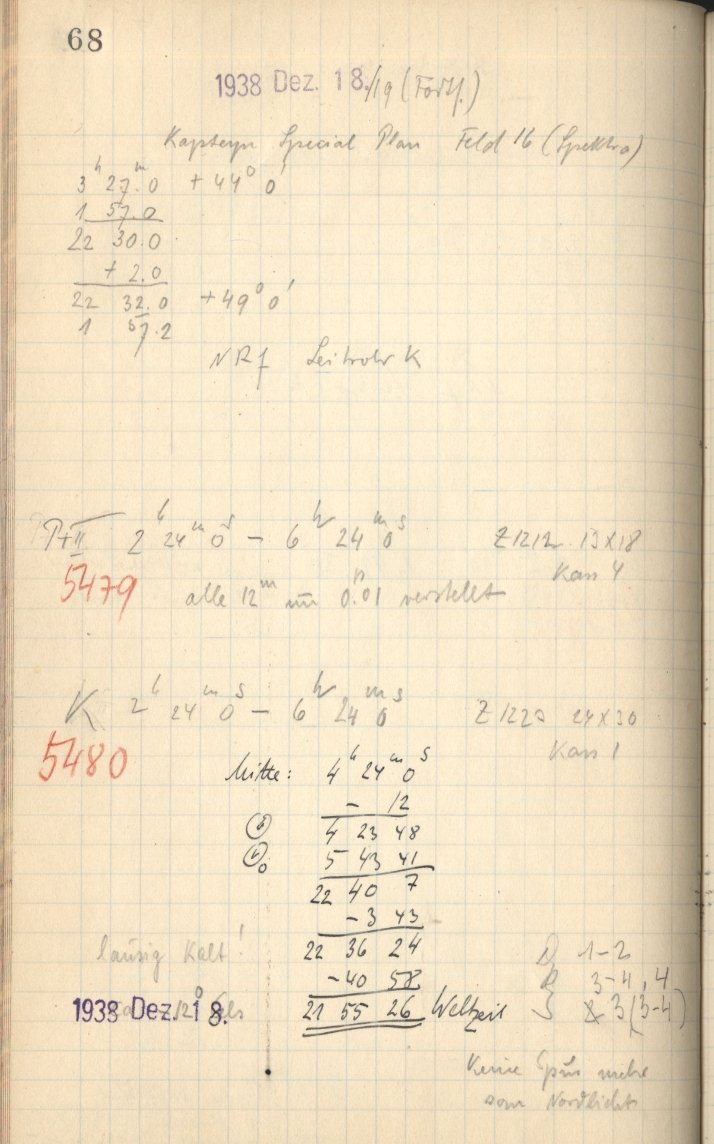 68
1938 Dez. 18./19 (Forts.)
Kapteyn Special Plan Feld 16 (Spektro)
3ʰ 27ᵐ.0 +44° 0'
1 57.0
22 30.0
+ 2.0
22 32.0 +49° 0'
1 57.2
NRf Leitrohr K
2ʰ 24ᵐ 0ˢ – 6ʰ 24ᵐ 0ˢ Z1212 13x18
5479 Kass 4
alle 12ᵐ um 0.01 verstellt
K 2ʰ 24ᵐ 0ˢ – 6ʰ 24ᵐ 0ˢ 24x30
5480 Kass 1
Mitte: 4ʰ 24ᵐ 0ˢ
– 12
4 23 48
5 43 41
22 40 7
– 3 43
lausig kalt! 22 36 24 1–2
– 40 58 3–4, 4
1938 Dez. 18. 21 55 26 Weltzeit S 3 (3–4)
Keine Spur mehr
vom Nordlicht